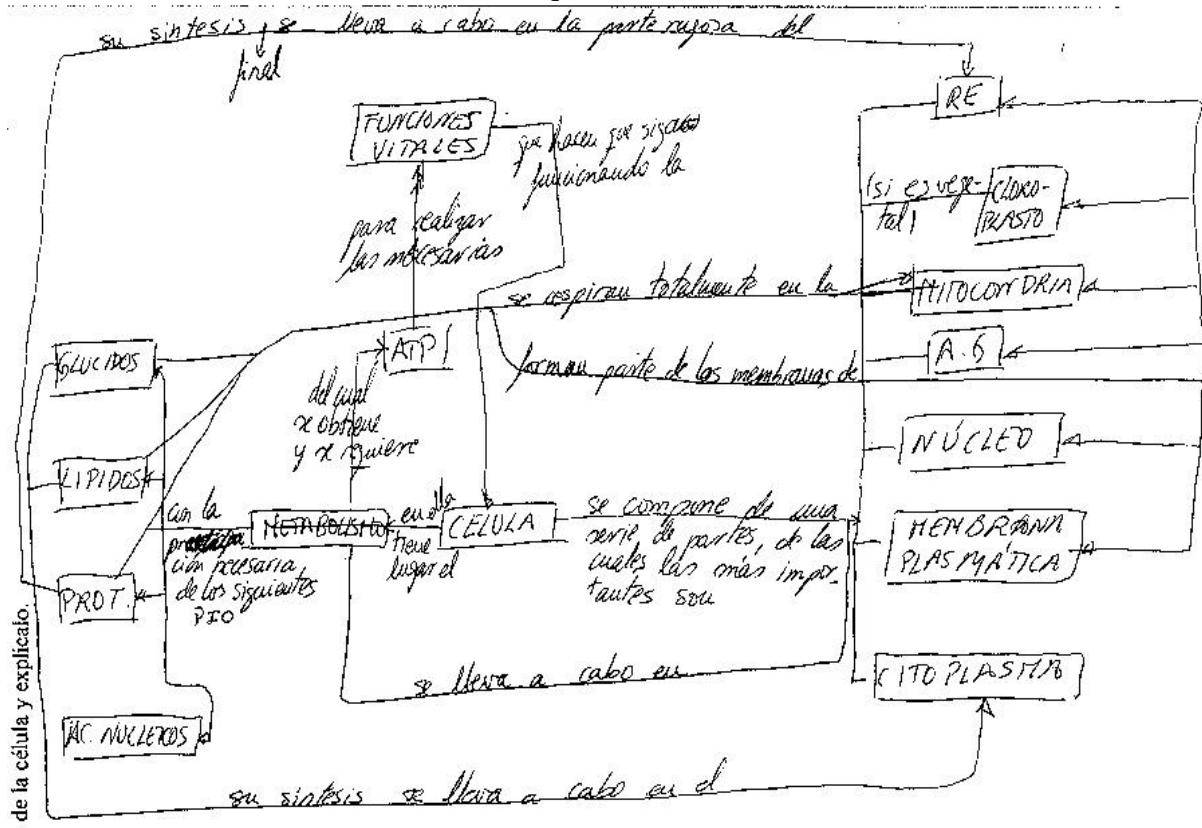 su síntesis se lleva a cabo en la parte rugosa del
final
RE
FUNCIONES
VITALES
que hacen que siga
funcionando la
(si es vege-
tal)
CLORO-
PLASTO
para realizar
las necesarias
se respiran totalmente en la
MITOCONDRIA
GLUCIDOS
ATP
A.G
forman parte de las membranas de
del cual
se obtiene
y se requiere
NÚCLEO
LIPIDOS
con la
participa-
ción necesaria
de los siguientes
PIO
METABOLISMO
en ella
tiene
lugar el
CÉLULA
se compone de una
serie de partes, de las
cuales las más impor-
tantes son
MEMBRANA
PLASMÁTICA
PROT.
se lleva a cabo en
CITOPLASMA
AC. NUCLEICOS
su síntesis se lleva a cabo en el
de la célula y explícalo.